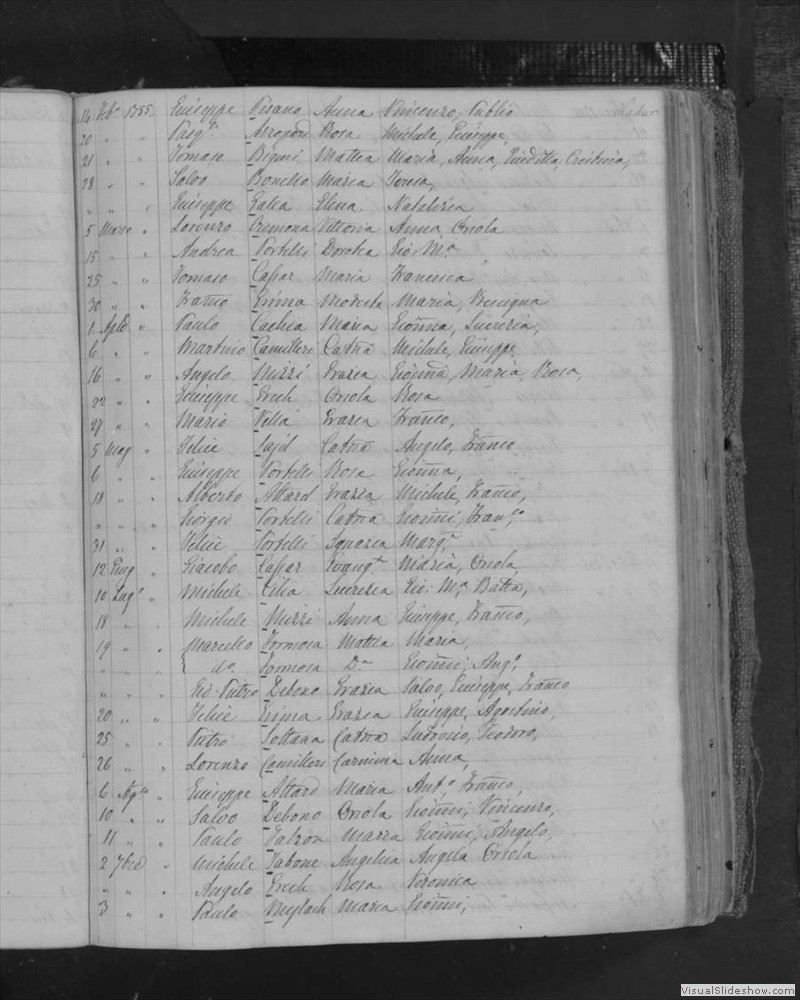 14 Feb. 1755 Giuseppe Pisano Anna Vincenzo, Publio
20 " " Pasq.le Rosa Michele, Giuseppe,
21 " " Tomaso Bigeni Mattea Maria, Anna,
28 " " Salvo Bonello Maria Teresa,
" " " Giuseppe Galea Elena Natalizia
5 Marzo " Lorenzo Cremona Vittoria Anna, Orsola
15 " " Andrea Portelli Dorotea Gio: Ma.
25 " " Tomaso Cassar Maria Francesca
30 " " Franco Grima Modesta Maria, Benigna
1 Aple " Paulo Cachia Maria Gionna, Lucrezia,
6 " " Martino Camilleri Catna Michele, Giuseppe,
16 " " Angelo Mizzi Grazia Gionna, Maria, Rosa,
22 " " Giuseppe Grech Orsola Rosa
27 " " Mario Vella Grazia Franco,
5 Mag " Felice Said Catna Angelo, Franco
6 " " Giuseppe Portelli Rosa Gionna,
18 " " Alberto Attard Grazia Michele, Franco,
" " " Giorgio Portelli Catna Gionni, Fran.co
31 " " Felice Portelli Ignazia Marg.a
12 Giug " Giacobo Cassar Evang.ta Maria, Orsola,
10 Lug.o " Michele Cilia Lucrezia Gio: Ma. Batta,
18 " " Michele Mizzi Anna Giuseppe, Franco,
19 " " Marcello Formosa Mattea Maria,
" " { do. Formosa Da. Gionni, Ang.o
" " " Gio: Pietro Debono Grazia Salvo, Giuseppe, Franco
20 " " Felice Grima Grazia Giuseppe, Agostino,
25 " " Pietro Soltana Catna Ludovico, Teodoro,
26 " " Lorenzo Camilleri Carmina Anna,
6 Ag.to " Giuseppe Attard Maria Ant.o, Franco,
10 " " Salvo Debono Orsola Gionni, Vincenzo,
11 " " Paulo Falzon Maria Gionni, Angelo,
2 7bre " Michele Tabone Angelica Angela Orsola
" " " Angelo Grech Rosa Veronica
3 " " Paulo Maria Gionni,
VisualSlideshow.com